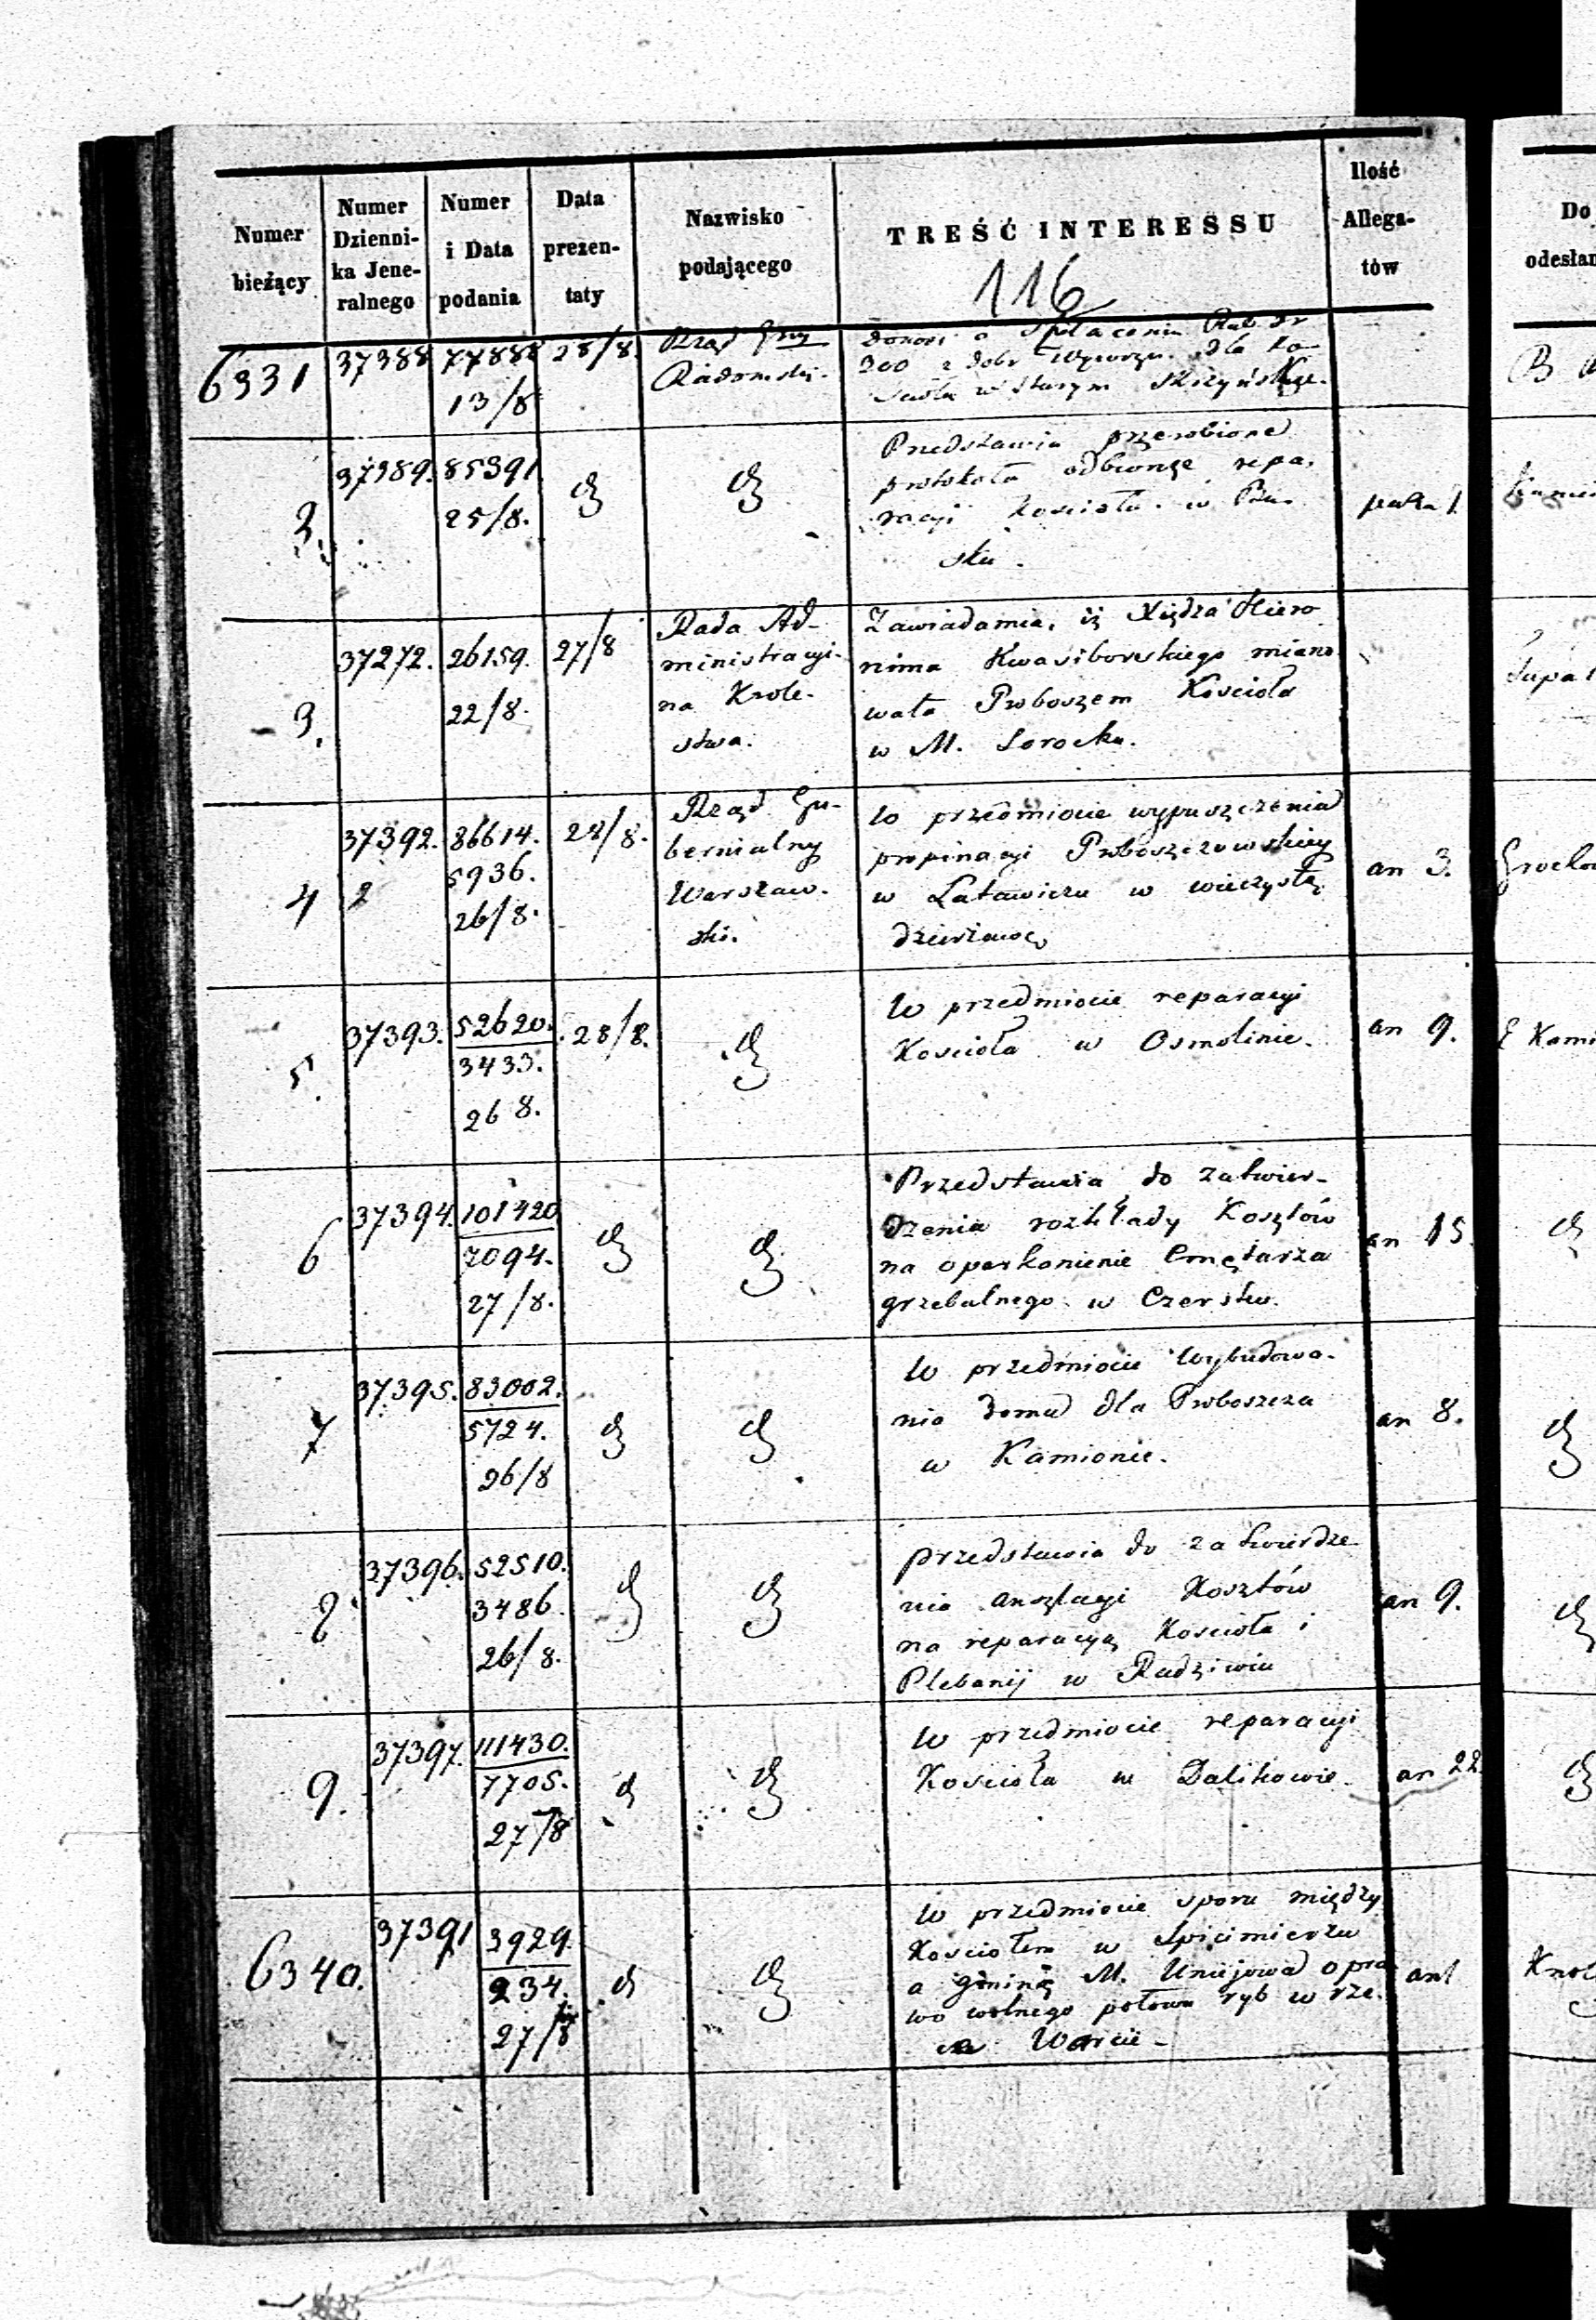 Numer bieżący
Numer Dzienni-
ka Jene-
ralnego
Numer i Data podania
Data prezen-
taty
Nazwisko podającego
TREŚĆ INTERESSU
Ilość Allega-
tów
Do
116
6331 37388 77888 28/8. Rząd Gny
13/8 Radomski.
Donosi o Spłaceniu Rub. sr
300 z dobr dla Ko-
scioła w Starym
2. 37389. 85391
25/8.
Przedstawia przerobione
protokoła odbiorcze repa.
racyi Kościoła w
sku.
3. 37272. 26159. 27/8
22/8.
Rada Ad-
ministracyi-
na Krole-
stwa.
Zawiadamia, iż Xiędza Hiero
nima Kwasiborskiego miano
wała Proboszczem Kościoła
w M. Serocku.
4 37392. 86614. 28/8.
2 5936.
26/8.
Rząd Gu-
bernialny
Warszaw-
ski.
W przedmiocie wypuszczenia
propinacyi Proboszczowskiey
w Latowiczu w wieczystą
dzierżawę
an 3.
5. 37393. 52620. 28/8.
3433.
26 8.
W przedmiocie reparacyi
Kościoła w Osmolinie.
an 9.
6 37394. 101420
7094.
27/8.
Przedstawia do zatwier-
dzenia rozkłady Kosztów
na oparkanienie Cmętarza
grzebalnego w Czersku.
an 15.
7 37395. 83002.
5724.
26/8
W przedmiocie Wybudowa-
nia domu dla Proboszcza
w Kamionie.
an 8.
8 37396. 52510.
3486.
26/8.
przedstawia do zatwierdze
nia anszlagi Kosztów
na reparacyą Kościoła i
Plebanij w Radziwiu
an 9.
9. 37397. 111430.
7705.
27/8
W przedmiocie reparacyi
Kościoła w Dalikowie.
an 22
6340. 37391 3929
234.
27/8
W przedmiocie sporu między
Kosciołem w Spicimierzu
a gminą M. Uniejowa o pra
wo wolnego połowu ryb w rze.
ce Warcie -
an 1